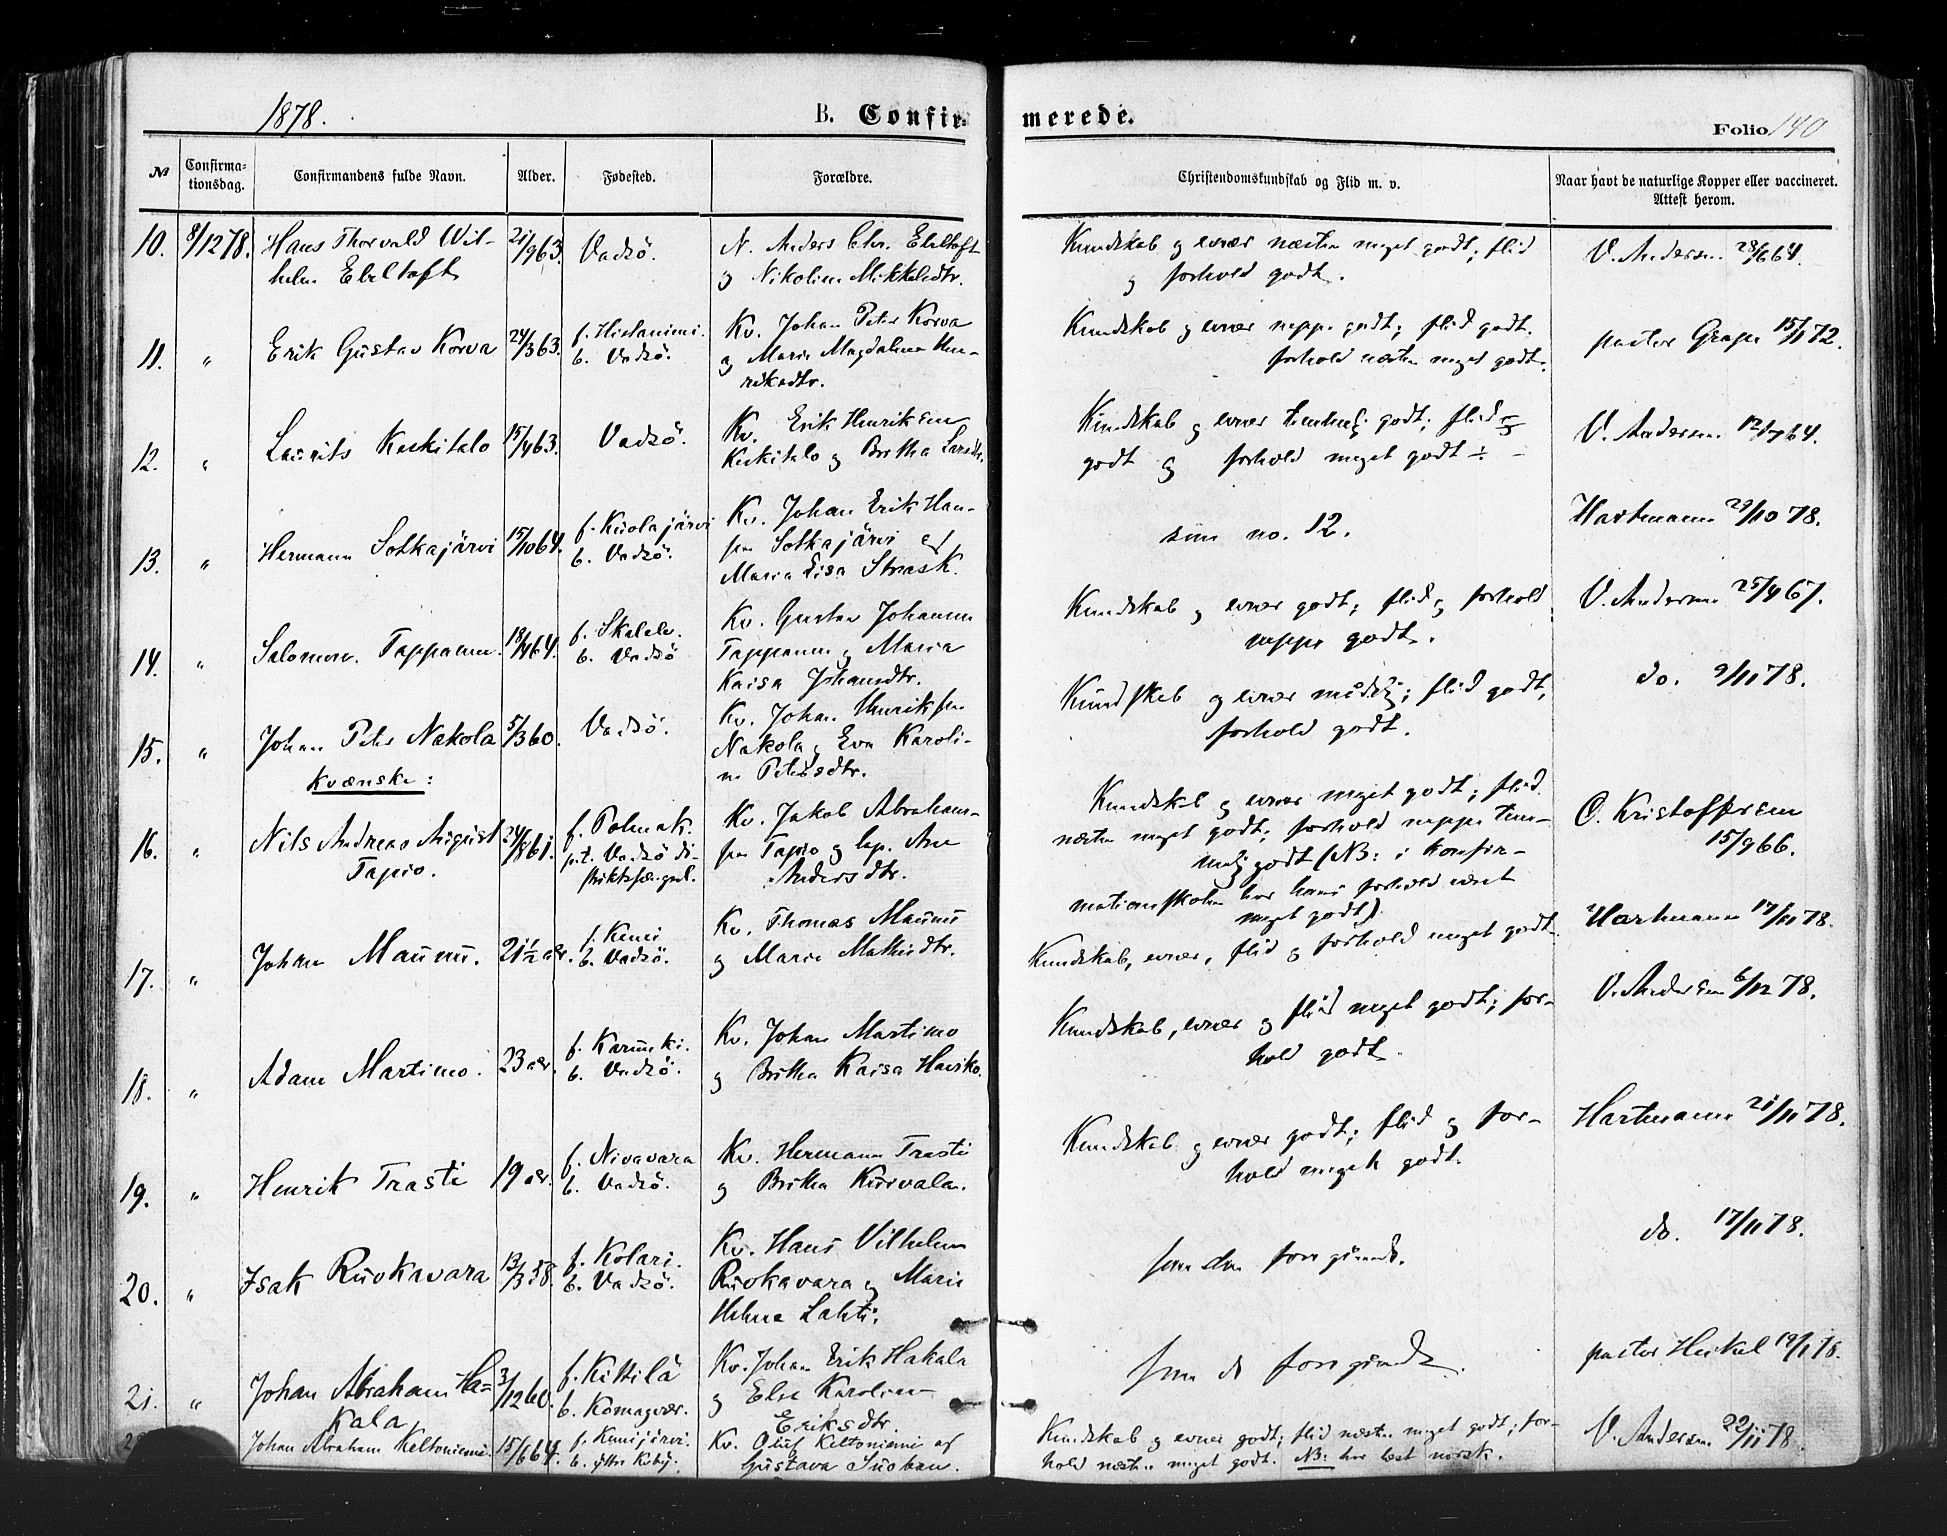 1878. B. Confirmerede. Folio 140
№ Confirmationsdag. Confirmandens fulde Navn. Alder. Fødested. Forældre. Christendomskundskab og Flid m. v. Naar havt de naturlige Kopper eller vaccineret. Attest herom.
10. 8/12 78. Hans Thorvald Wil-
helm Ebeltoft
21/9 63. Vadsö.
N. Anders Chr. Ebeltoft
og Nikoline Mikkelsdtr.
Kundskab og evner næsten meget godt; flid
og forhold godt.
V. Andersen 28/6 64.
11. " Erik Gustav Korva 24/3 63.
f. Hietaniemi.
b. Vadsö.
Kv. Johan Peter Korva
og Maria Magdalena Hen-
riksdtr.
Kundskab og evner neppe godt; flid godt.
forhold næsten meget godt.
pastor Grape 15/11 72.
12. " Laurits Keskitalo 15/4 63. Vadsö.
Kv. Erik Henriksen
Keskitalo og Britha Larsdtr.
Kundskab og evner temmelig godt; flid
godt og forhold meget godt ÷
V. Andersen 64.
13. " Hermann Sotkajärvi 15/10 64.
f. Kuolajärvi
b. Vadsö.
Kv. Johan Erik Han-
sen Sotkajärvi og
Maria Lisa Strask.
som no. 12.
Hartmann 29/10 78.
14. " Salomon Tappanen. 18/4 64.
f. Skalelv.
b. Vadsö
Kv. Gustav Johansen
Tappanen og Maria
Kaisa Johansdtr.
Kundskab og evner godt; flid og forhold
neppe godt.
V. Andersen 25/4 67.
15. " Johan Peter Nakola 5/3 60. Vadsö.
Kv. Johan Henriksen
Nakola og Eva Karoli-
ne Petersdtr.
Kundskab og evner mådelig; flid godt,
forhold godt.
do. 9/11 78.
Kvænske:
16. " Nils Andreas August
Tapio.
24/8 61.
f. Polmak.
p.t. Vadsö di-
striktsfængsel.
Kv. Jakob Abraham-
sen Tapio og lap. Ane
Andersdtr.
Kundskab og evner meget godt; flid
næsten meget godt; forhold neppe tem-
melig godt (NB: i konfir-
mationsskolen har hans forhold været
meget godt).
C. Kristoffersen
15/9 66.
17. " Johan Maunu. 21½ år.
f. Kemi
b. Vadsö.
Kv. Thomas Maunu
og Maria Mathisdtr.
Kundskab, evner, flid og forhold meget godt.
Hartmann 17/11 78.
18. " Adam Martimo. 23 år.
f. Karunki.
b. Vadsö.
Kv. Johan Martimo
og Britha Kaisa Haviko.
Kundskab, evner og flid meget godt; for-
hold godt.
V. Andersen 6/12 78.
19. " Henrik Trasti 19 år.
f. Nivavara
b. Vadsö.
Kv. Hermann Trasti
og Britha Kurvala.
Kundskab og evner godt; flid og for-
hold meget godt.
Hartmann 21/11 78.
20. " Isak Ruokavara 13/3 58.
f. Kolari.
b. Vadsö.
Kv. Hans Vilhelm
Ruokavara og Marie
Helene Lahti.
som den foregående.
do. 17/11 78.
21. " Johan Abraham Ha-
kala
3/12 60.
f. Kittilä
b. Komagvær.
Kv. Johan Erik Hakala
og Else Karoline
Eriksdtr.
som de foregående.
pastor Heikel 19/1 78.
Johan Abraham Keltoniemi. 15/6 64.
f. Kemijärvi.
b. ytre Kiby.
Kv. Oluf Keltoniemi og
Gustava Suoban.
Kundskab og evner godt; flid næsten meget godt; for-
hold næsten meget godt. NB: har læst norsk.
V. Andersen 22/11 78.